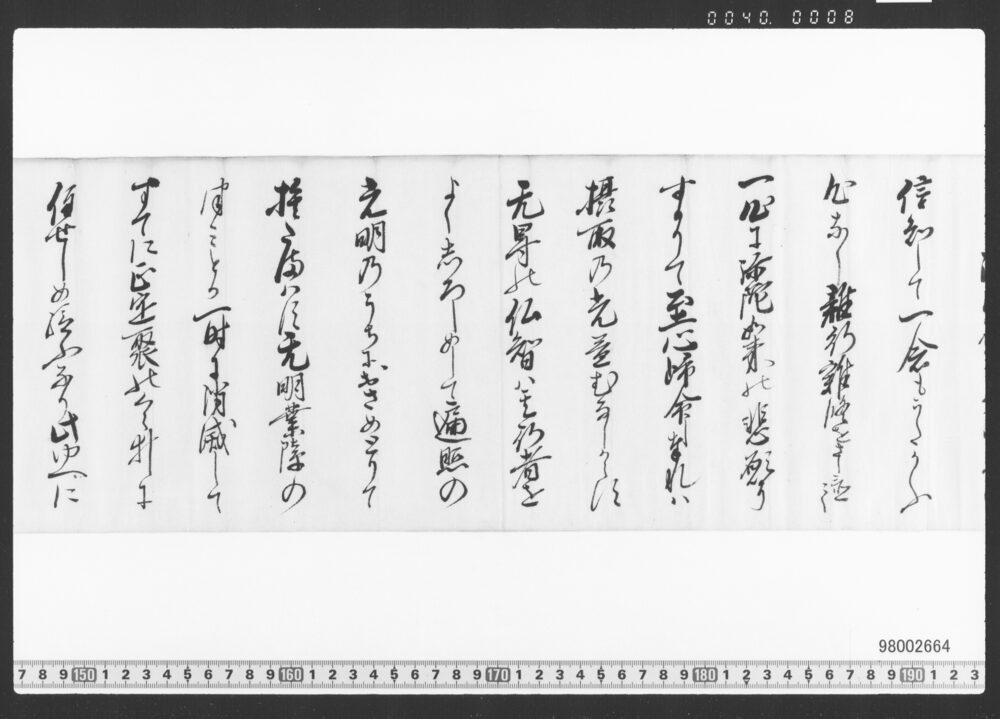 0040. 0008
信知して一念もうたかふ
心なく雑行雑修をすて
一心に弥陀如来の悲願に
すかりて至心帰命すれハ
摂取乃光益むなしからす
无㝵の仏智ハ其行者を
よくしろしめして遍照の
光明乃うちにおさめとりて
捨たまハす无明業障の
つみとか一時に消滅して
すてに正定聚のくらゐに
住せしめ給ふなり此ゆへに
98002664
7 8 9 150 1 2 3 4 5 6 7 8 9 160 1 2 3 4 5 6 7 8 9 170 1 2 3 4 5 6 7 8 9 180 1 2 3 4 5 6 7 8 9 190 1 2 3